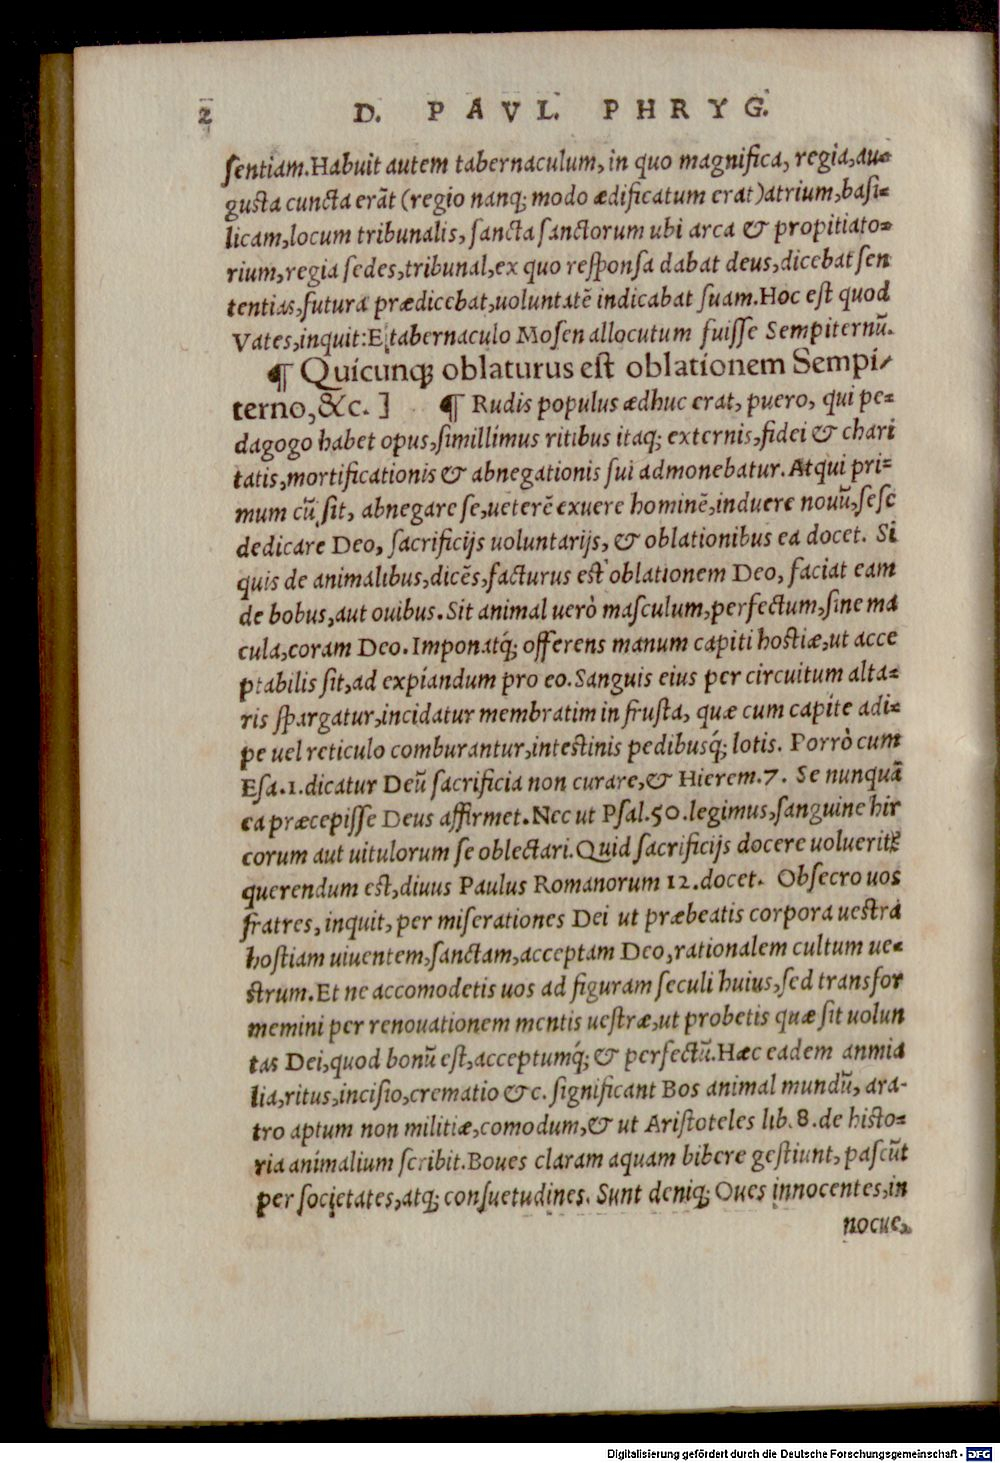 2 D. PAVL. PHRYG.
sentiam.Habuit autem tabernaculum, in quo magnifica, regia,au=
gusta cuncta erāt (regio nanq; modo ædificatum erat)atrium,basi=
licam,locum tribunalis, sancta sanctorum ubi arca & propitiato=
rium,regia sedes,tribunal,ex quo responsa dabat deus,dicebat sen
tentias,futura prædicebat,uoluntatē indicabat suam.Hoc est quod
Vates,inquit:E tabernaculo Mosen allocutum fuisse Sempiternū.
¶ Quicunq; oblaturus est oblationem Sempi/
terno,&c. ] ¶ Rudis populus ædhuc erat, puero, qui pe=
dagogo habet opus,simillimus ritibus itaq; externis,fidei & chari
tatis,mortificationis & abnegationis sui admonebatur. Atqui pri=
mum cū sit, abnegare se,ueterē exuere hominē,induere nouū,sese
dedicare Deo, sacrificijs uoluntarijs, & oblationibus ea docet. Si
quis de animalibus,dicēs,facturus est oblationem Deo, faciat eam
de bobus,aut ouibus. Sit animal uerò masculum,perfectum,sine ma
cula,coram Deo. Imponatq́; offerens manum capiti hostiæ,ut acce
ptabilis sit,ad expiandum pro eo.Sanguis eius per circuitum alta=
ris spargatur,incidatur membratim in frusta, quæ cum capite adi=
pe uel reticulo comburantur,intestinis pedibusq́; lotis. Porrò cum
Esa.1.dicatur Deū sacrificia non curare,& Hierem.7. Se nunquā
ea præcepisse Deus affirmet.Nec ut Psal.50.legimus,sanguine hir
corum aut uitulorum se oblectari.Quid sacrificijs docere uoluerit
querendum est,diuus Paulus Romanorum 12.docet. Obsecro uos
fratres, inquit, per miserationes Dei ut præbeatis corpora uestra
hostiam uiuentem,sanctam,acceptam Deo,rationalem cultum ue=
strum.Et ne accomodetis uos ad figuram seculi huius,sed transfor
memini per renouationem mentis uestræ,ut probetis quæ sit uolun
tas Dei,quod bonū est,acceptumq́; & perfectū.Hæc eadem anmia
lia,ritus,incisio,crematio &c. significant Bos animal mundū, ara-
tro aptum non militiæ,comodum,& ut Aristoteles lib.8.de histo=
ria animalium scribit.Boues claram aquam bibere gestiunt, pascūt
per societates,atq; consuetudines. Sunt deniq; Oues innocentes,in
nocue,
Digitalisierung gefördert durch die Deutsche Forschungsgemeinschaft - DFG